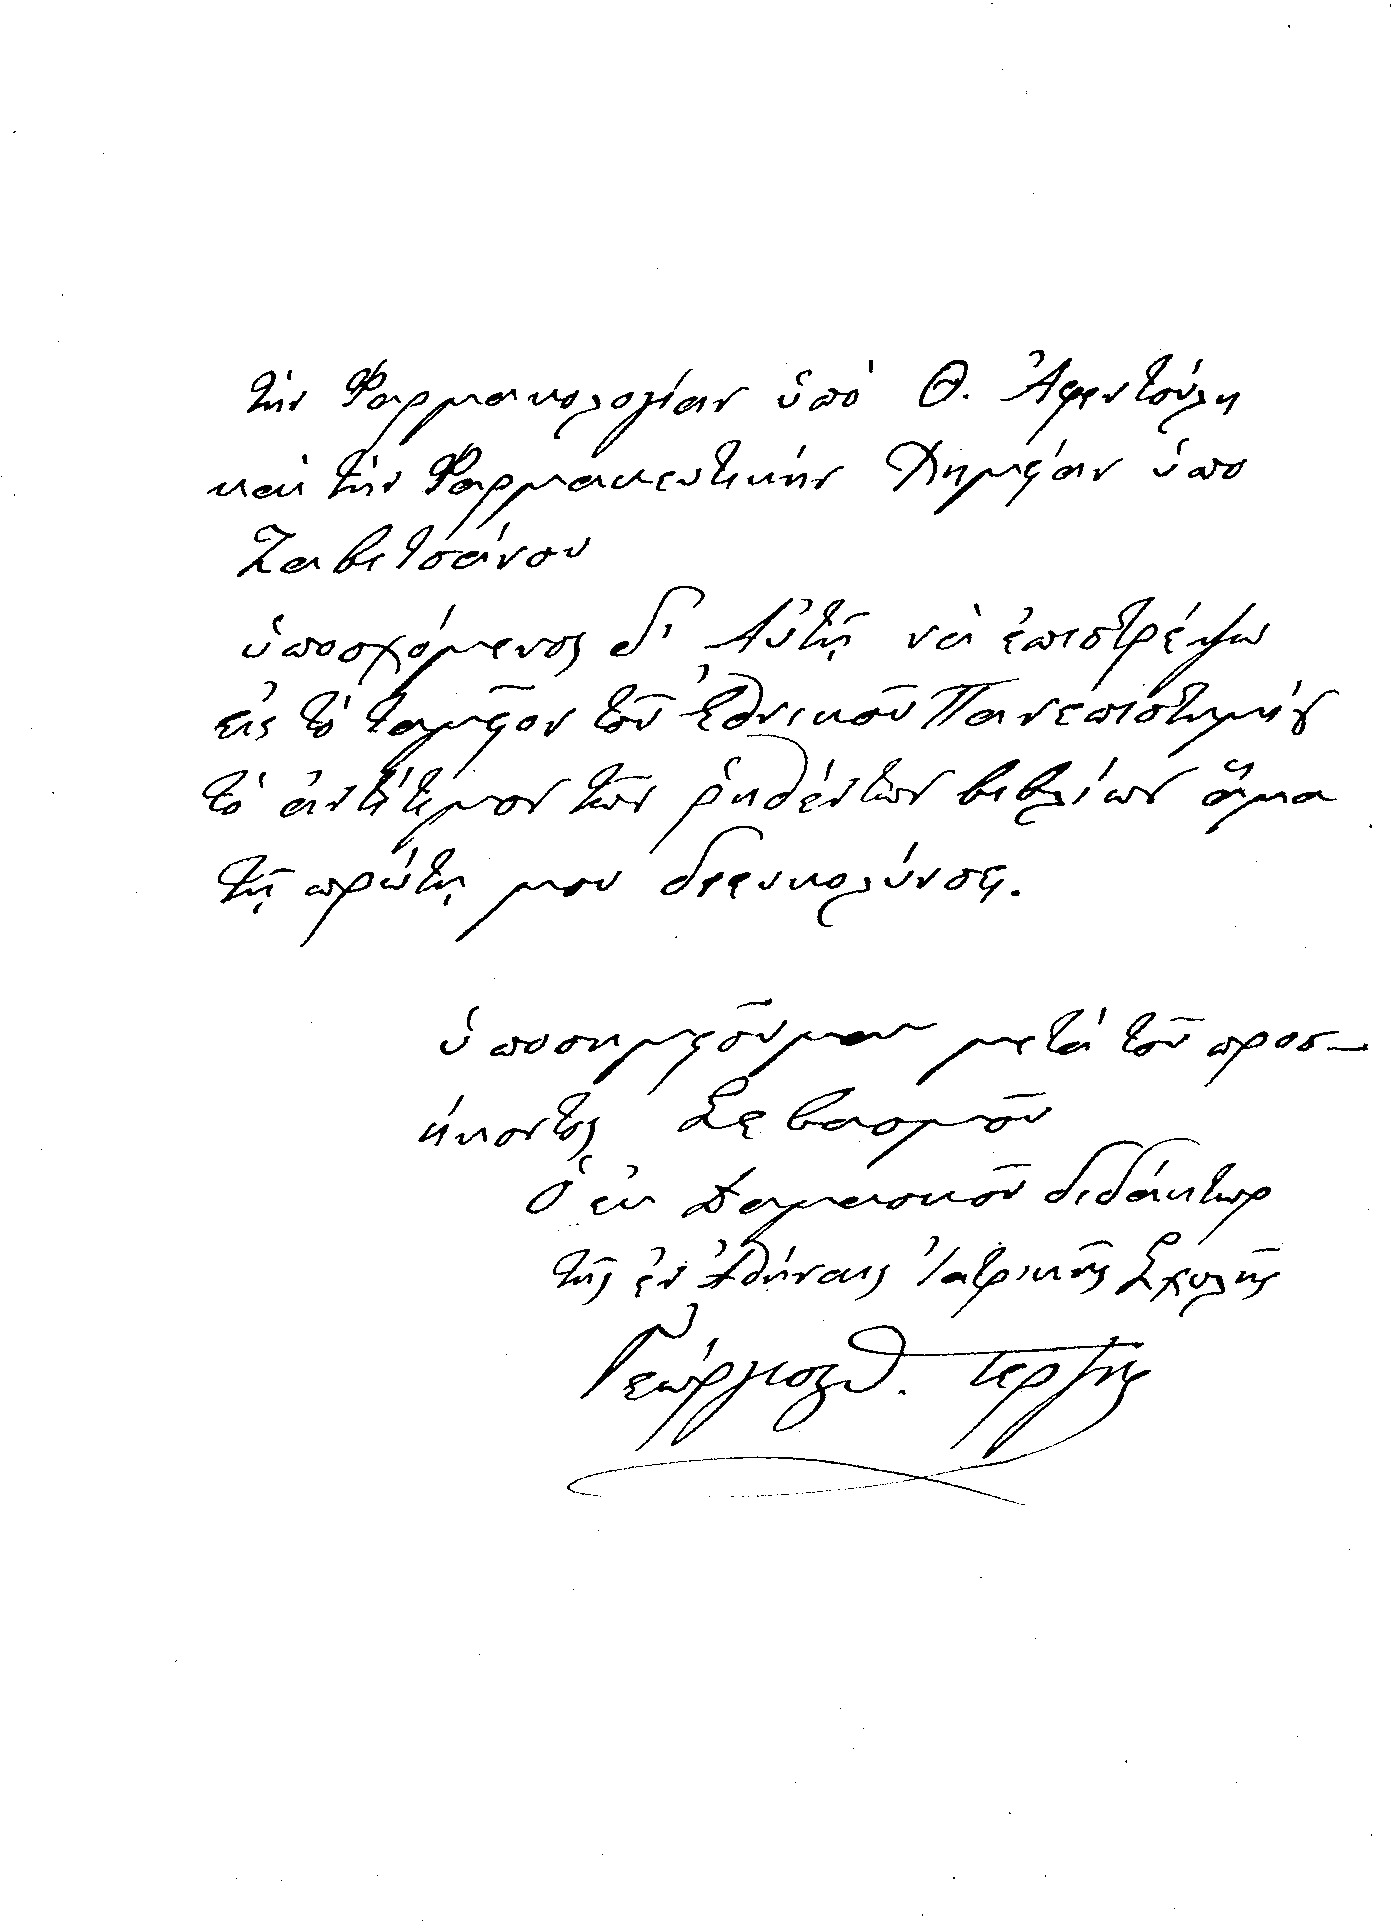 τὴν Φαρμακολογίαν ὑπὸ Θ. Ἀφεντούλη
καὶ τὴν Φαρμακευτικὴν Χημείαν ὑπο
Ζαβιτσάνου
ὑποσχόμενος δι' Αὐτῆς νὰ ἐπιστρέψω
εἰς τὸ ταμεῖον τοῦ Ἐθνικοῦ Πανεπιστημίου
τὸ ἀντίτιμον τῶν ῥηθέντων βιβλίων ἅμα
τῇ πρώτῃ μου διευκολύνσει.
ὑποσημειοῦμαι μετὰ τοῦ προσ-
ήκοντος Σεβασμοῦ
Ὁ ἐκ Δαμασκοῦ διδάκτωρ
τῆς ἐν Ἀθήναις Ἰατρικῆς Σχολῆς
Γεώργιος Τερζῆς